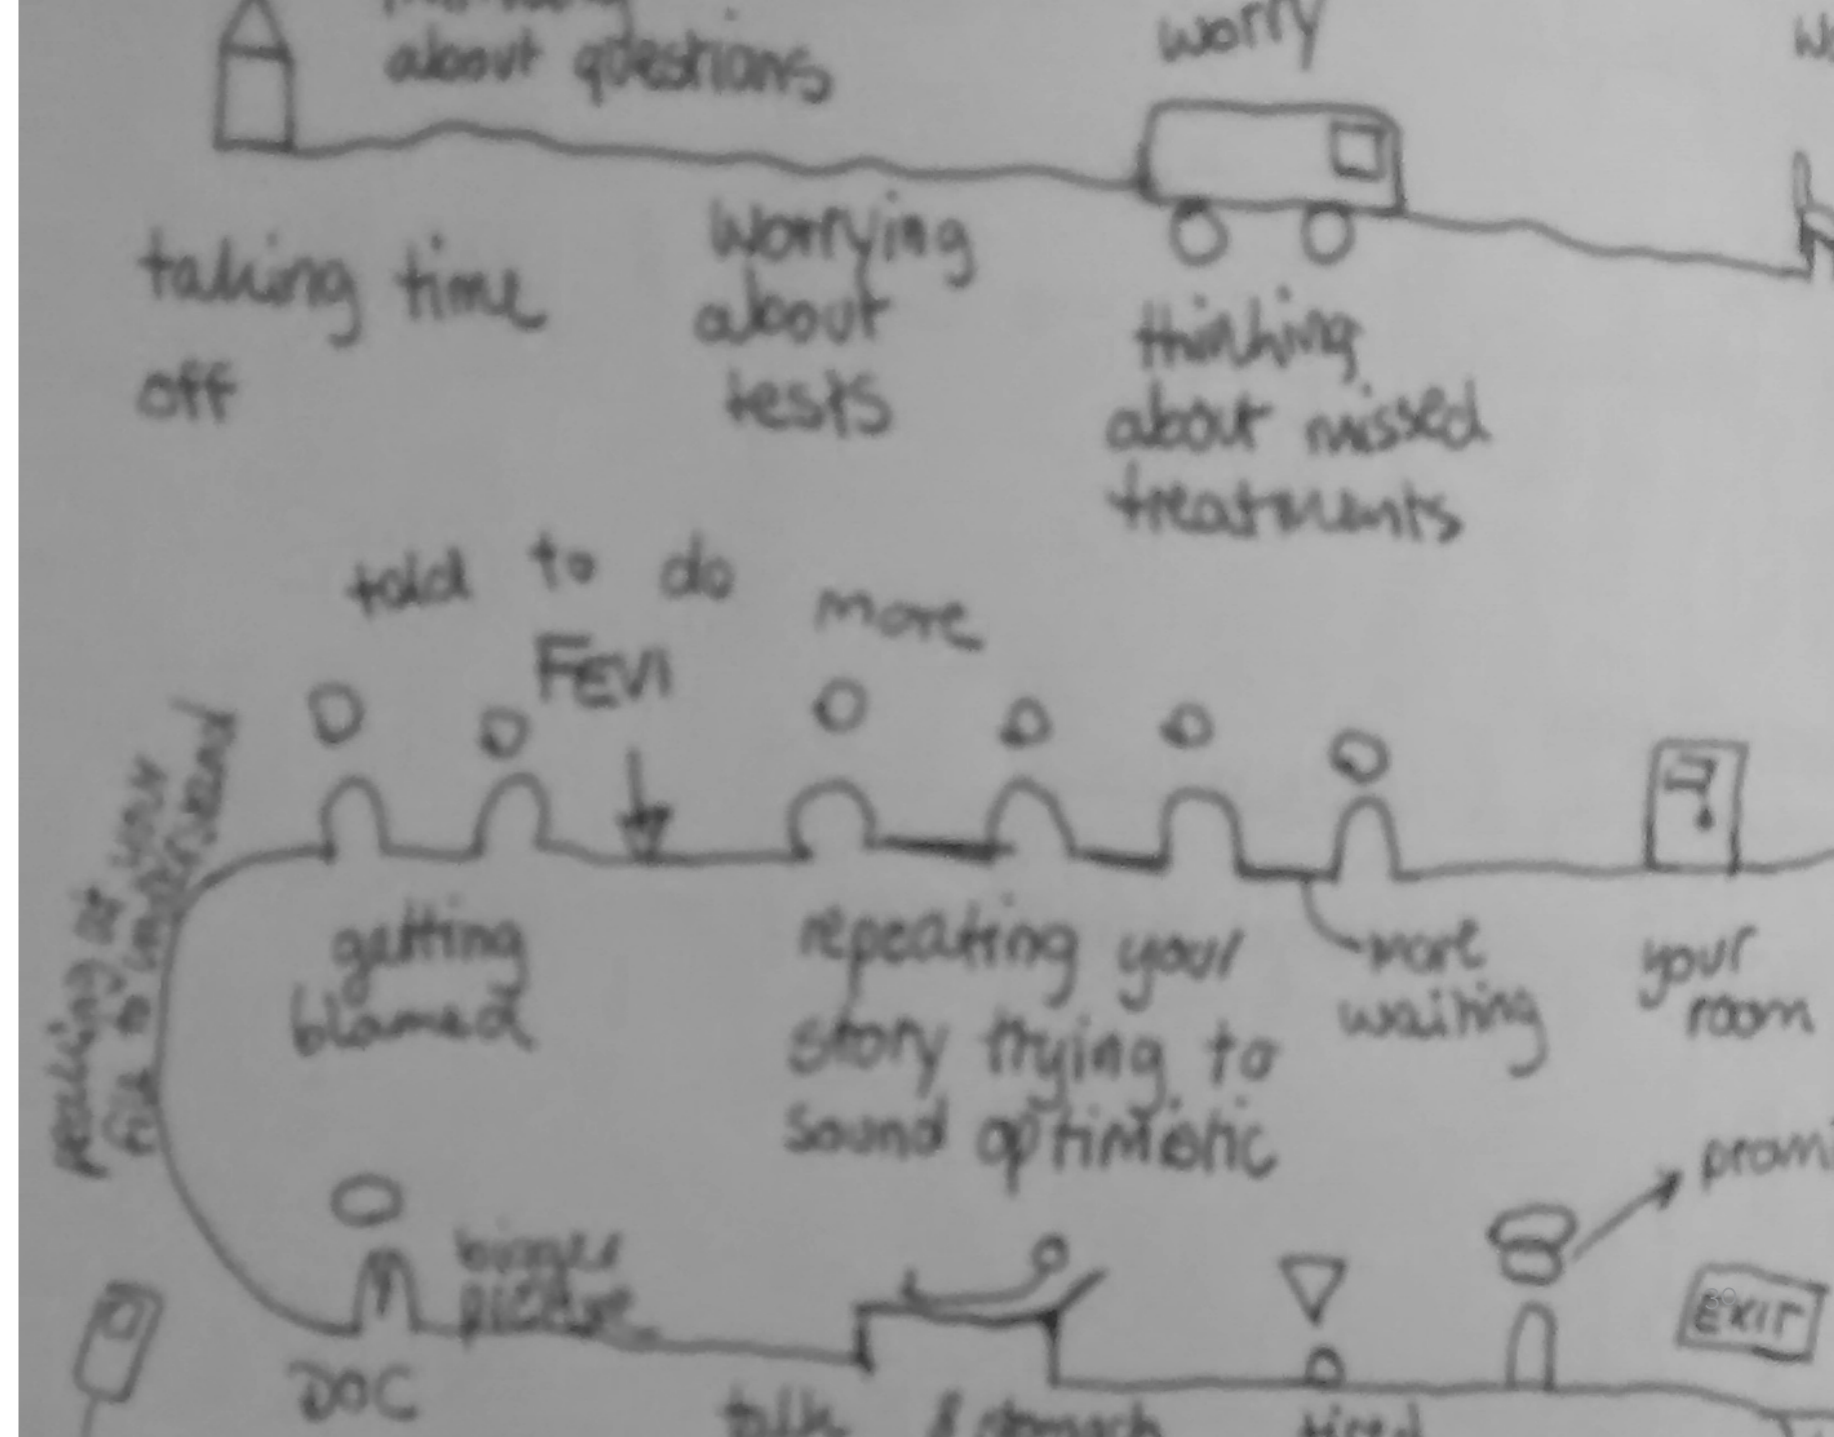 about questions
worry
taking time
off
worrying
about
tests
thinking
about missed
treatments
told to do more
FEV1
getting
blamed
repeating your
story trying to
sound optimistic
more
waiting
your
room
understand
bigger
picture
EXIT
DOC
talk & stomach tired